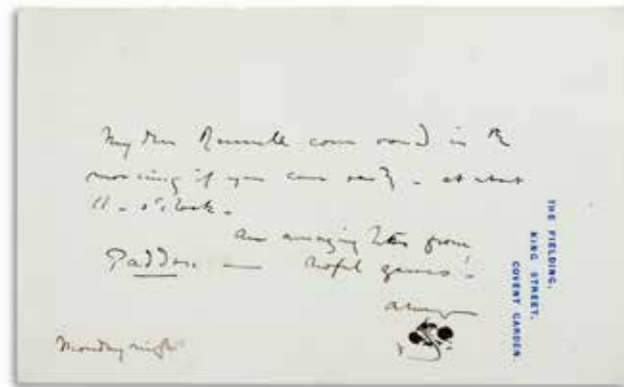 My dear Rennell come round in the
morning if you can early - at about
11 - o'clock -
An amazing letter from
Padder. —
always
Monday night
THE FIELDING,
KING STREET,
COVENT GARDEN.